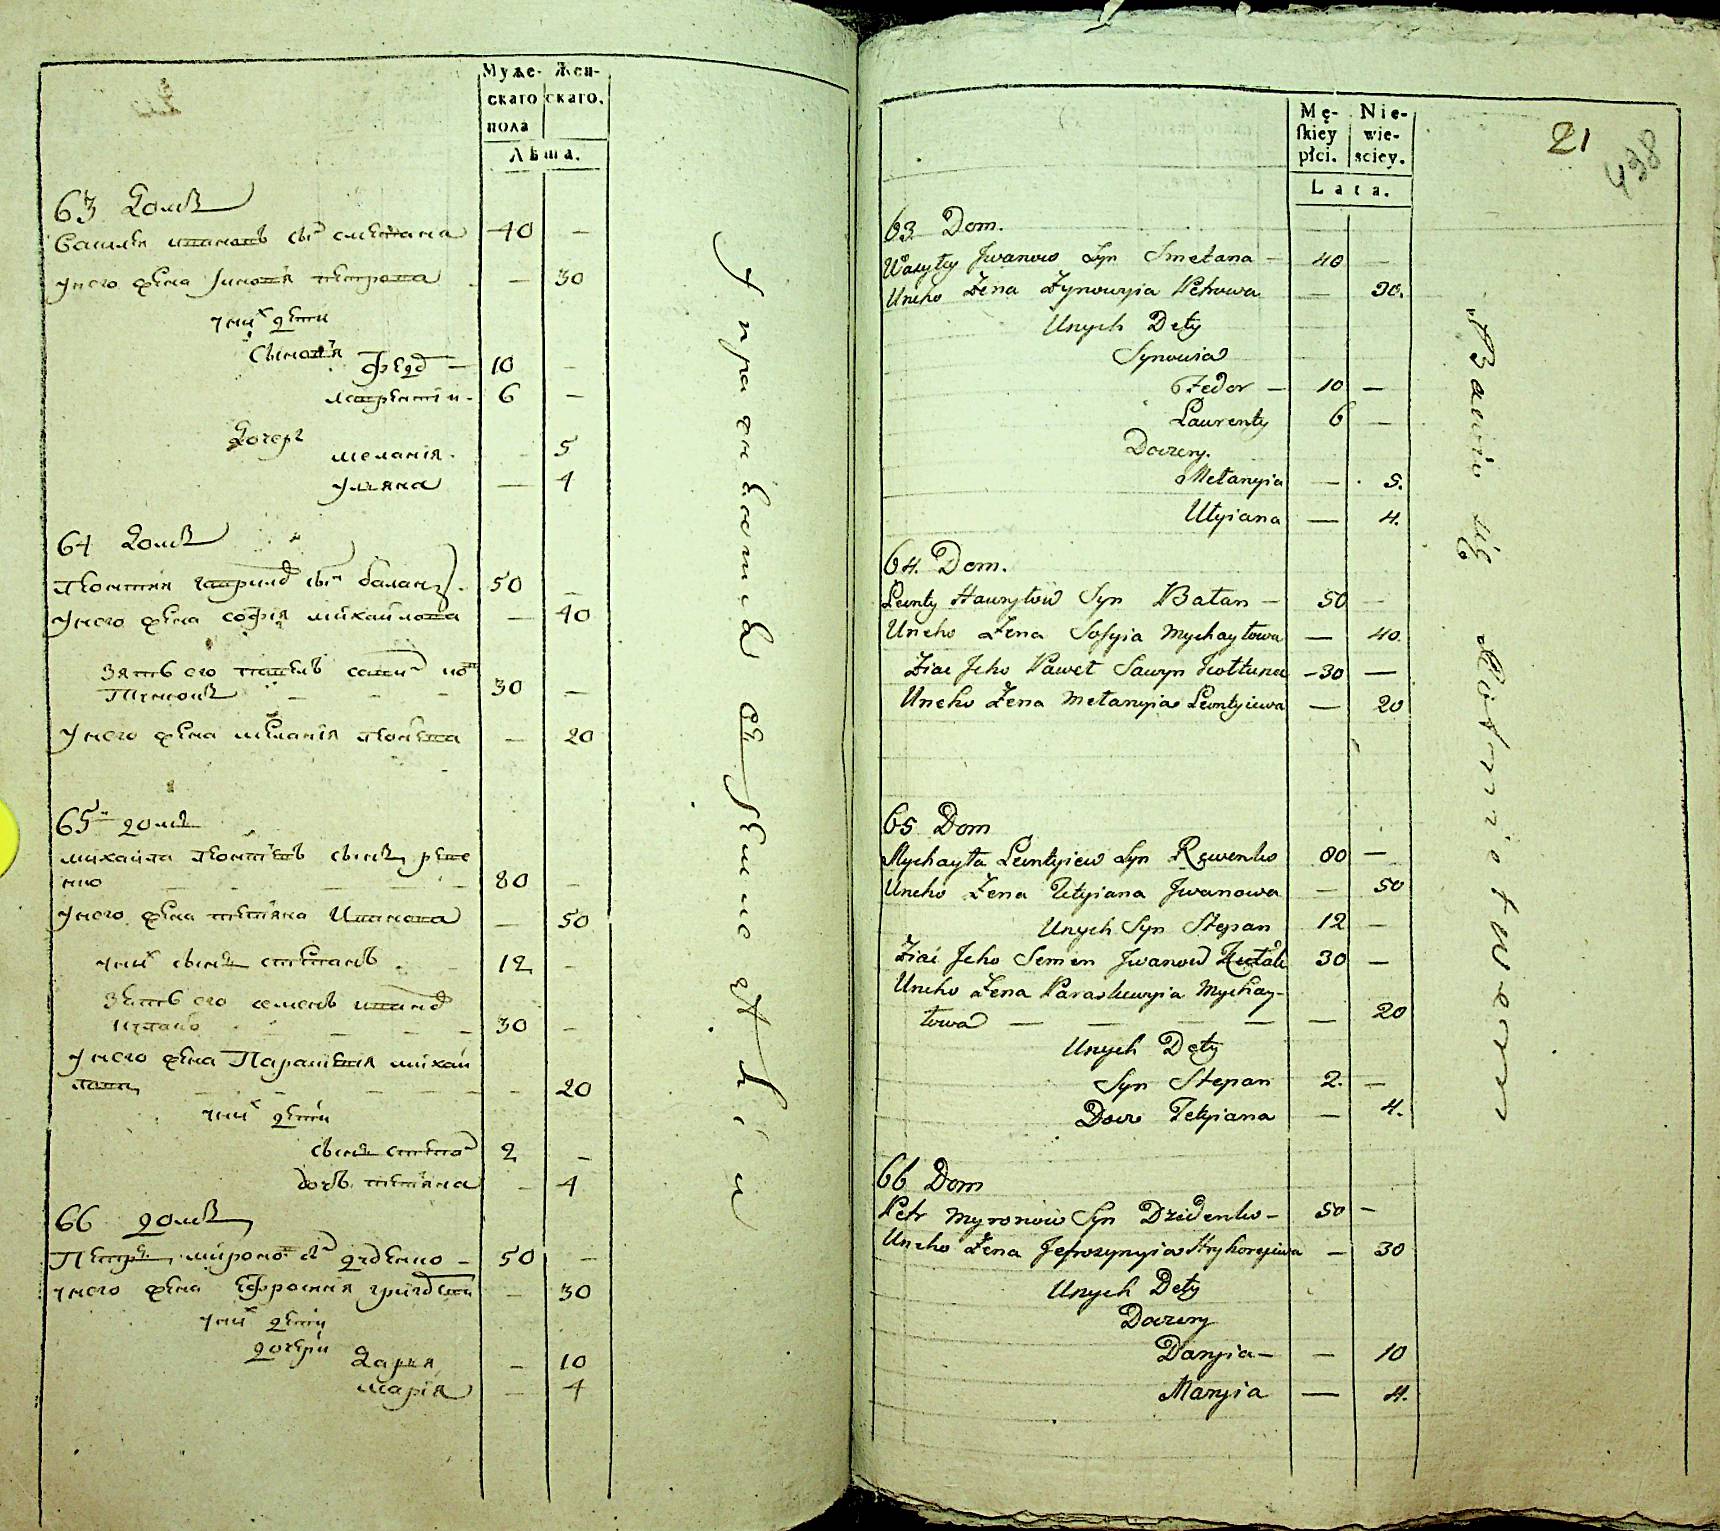 Муже-
скаго
пола
Жен-
скаго.
Лѣта.
63 домъ
Василій ивановъ сынъ сметана 40 —
Унего жена Зиновія петрова — 30
Унихъ дети
Сыновя Федоръ — 10 —
лаврентій 6 —
Дочери
меланія — 5
Уляна — 4
64 домъ
Леонтій гаврилов сынъ балан 50 —
Унего жена софія михайлова — 40
Зять его павелъ савинъ
30 —
Унего жена меланія леонтева — 20
65 домъ
михайла леонтіевъ сынъ реве
нко 80 —
Унего жена тетяна Иванова — 50
Унихъ сынъ степанъ 12 —
Зять его семенъ иванов
30 —
Унего жена Параскевия михай
лова — 20
Унихъ дети
сынъ степан 2 —
дочь тетяна — 4
66 домъ
Петръ миронов сын диденко — 50 —
Унего жена Ефросинія григорева — 30
Унихъ дети
дочери
Дарія — 10
марія — 4
Упражняются въ земледѣліи
Mę-
skiey
płci.
Nie-
wie-
sciey.
Lata.
21
438
63 Dom.
Wasyly Jwanow Syn Smetana — 40 —
Uneho Żena Zynowyia Petrowa — 30.
Unych Dety
Synowia
Fedor — 10 —
Laurenty 6 —
Doczery.
Mełanyia — 5.
Ulyiana — 4.
64 Dom.
Leonty Hawryłow Syn Bałan — 50 —
Uneho Żena Sofyia Mychayłowa — 40
Ziat Jeho Paweł Sawyn — 30 —
Uneho Żena Mełanyia Leontyiewa — 20
65 Dom
Mychayła Leontyiew Syn Rewenko 80 —
Uneho Żena Tetyiana Jwanowa — 50
Unych Syn Stepan 12 —
Ziat Jeho Semen Jwanow 30 —
Uneho Żena Paraskewyia Mychay-
łowa — — — — — 20
Unych Dety
Syn Stepan 2. —
Docz Tetyiana — 4.
66 Dom
Petr Myronow Syn Dzidenko — 50 —
Uneho Żena Jefrozynyia Hryhoryiewa — 30
Unych Dety
Doczery
Daryia — — 10
Maryia — 4.
Bawią się Rolnictwem